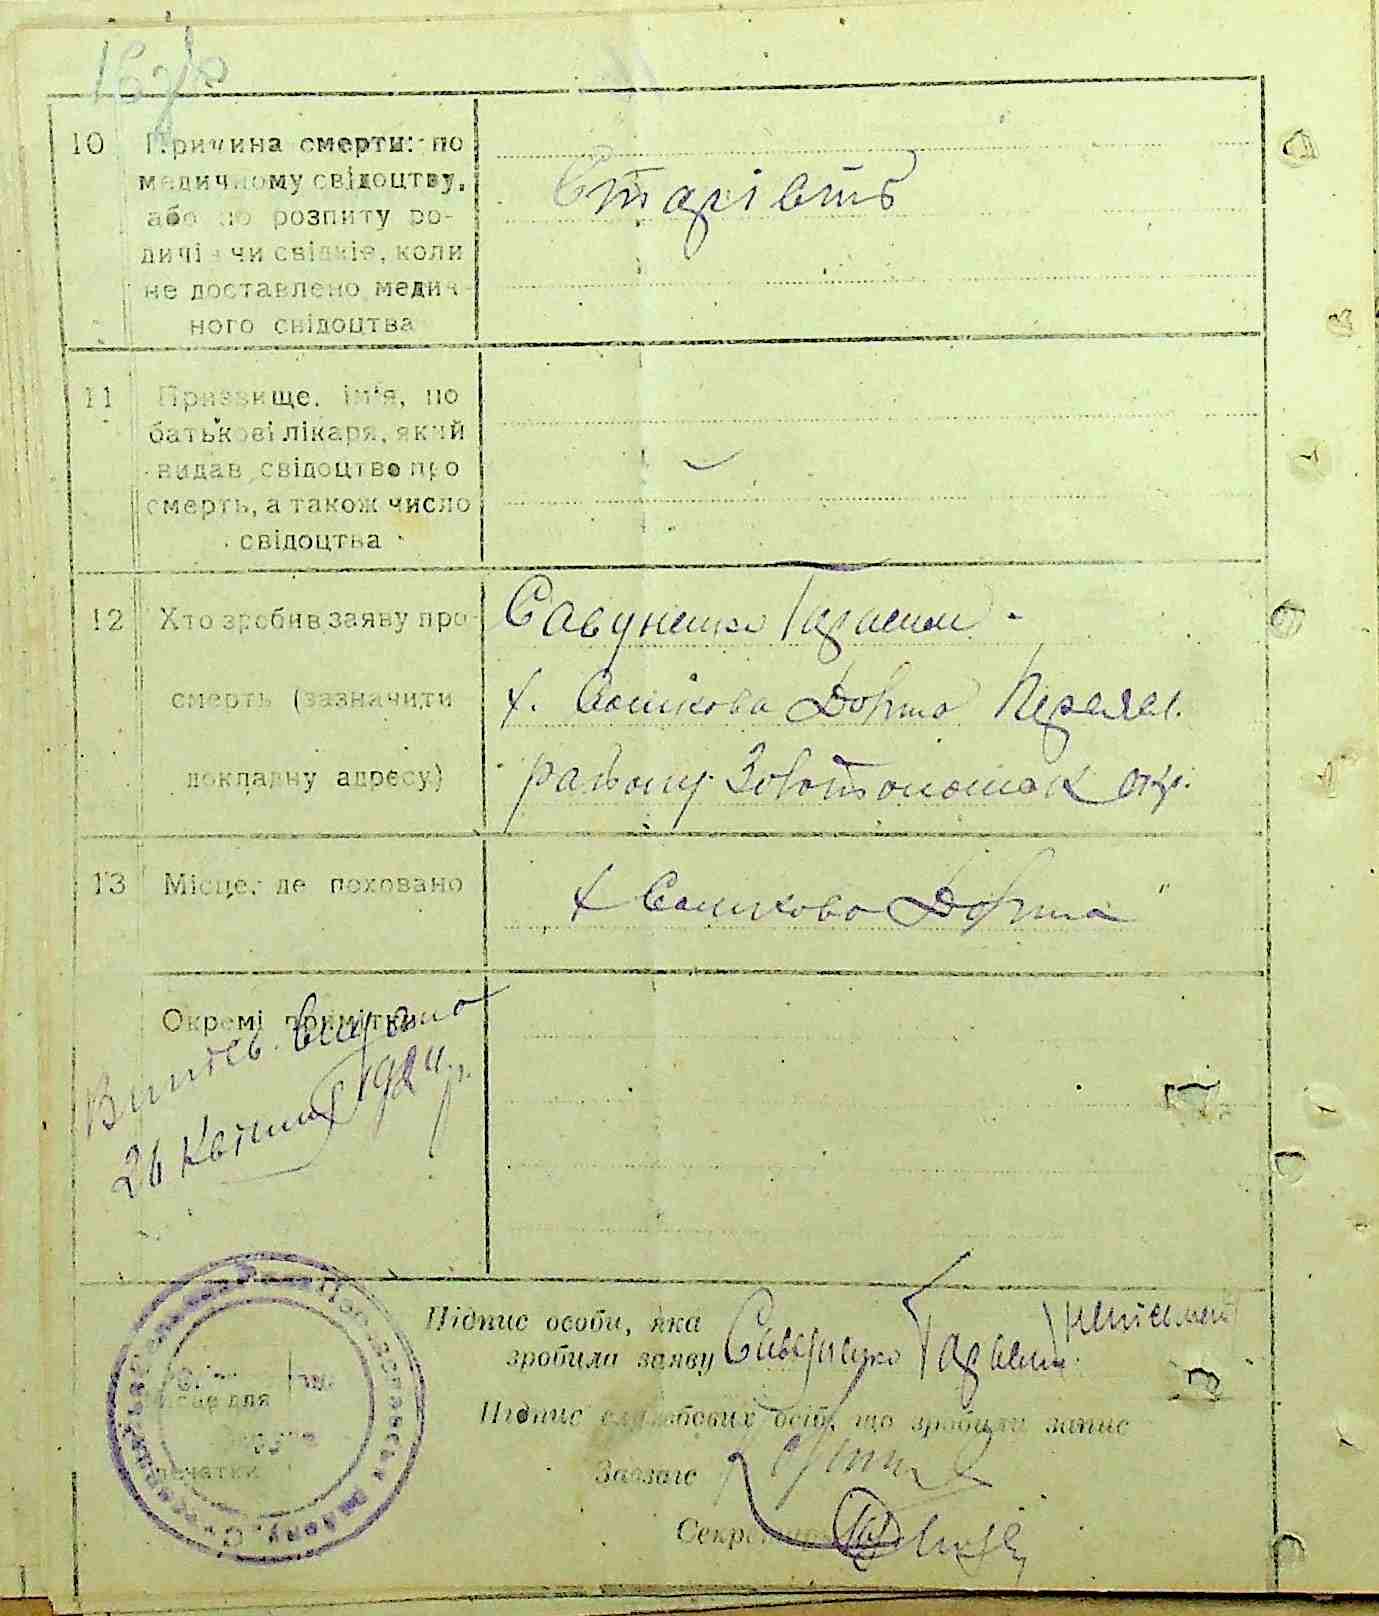 10 Причина смерти: по
медичному свідоцтву,
або по розпиту ро-
дичів чи свідків, коли
не доставлено медич-
ного свідоцтва
Старість
11 Призвище, ім'я, по
батькові лікаря, який
видав свідоцтво про
смерть, а також число
свідоцтва
12 Хто зробив заяву про
смерть (зазначити
докладну адресу)
Савуненко Гарасим
х. Сошкова Долина Переясл.
району Золотоношськ окр.
13 Місце, де поховано
х Сошкова Долина
Окремі примітки
Витяг видано
26 Квітня 1924 р.
Підпис особи, яка
зробила заяву Савуненко Гарасим
Підпис службових осіб, що зробили запис
Завзагс
Секретар
Місце для
печатки